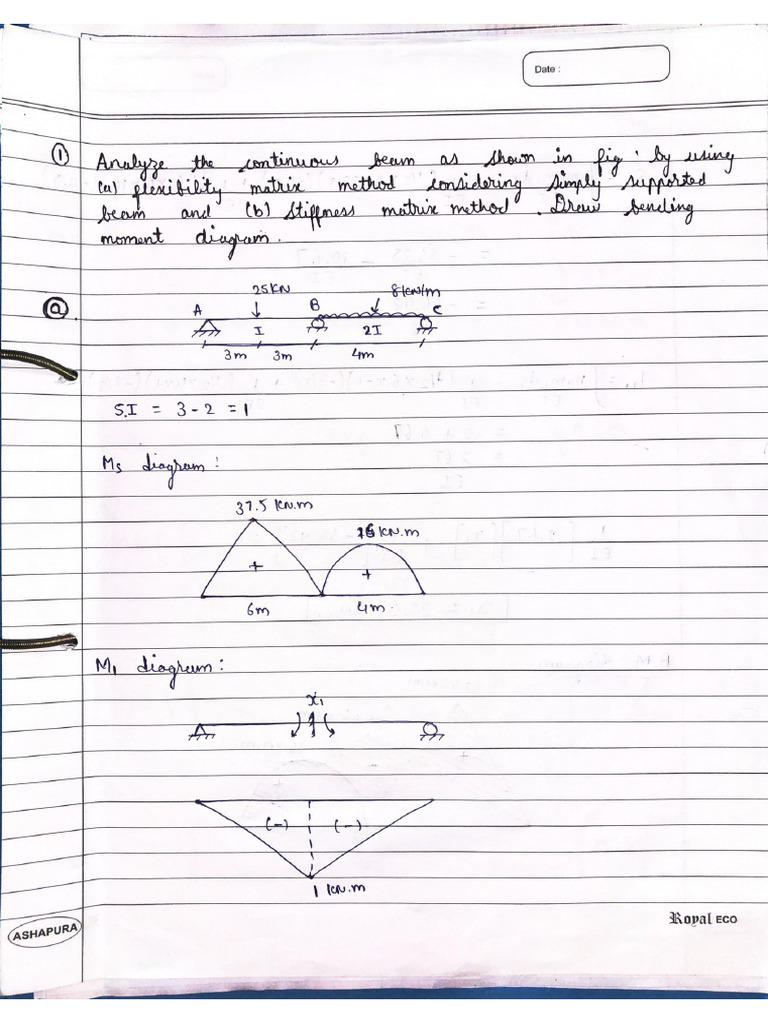 Date :
① Analyze the continuous beam as shown in fig. by using
(a) flexibility matrix method considering simply supported
beam and (b) Stiffness matrix method. Draw bending
moment diagram.
ⓐ
25KN 8kN/m
A B C
I 2I
3m 3m 4m
S.I = 3 - 2 = 1
Ms diagram :
37.5 KN.m
16 KN.m
+ +
6m 4m.
M₁ diagram :
x₁
(-) (-)
1 KN.m
ASHAPURA
Royal ECO